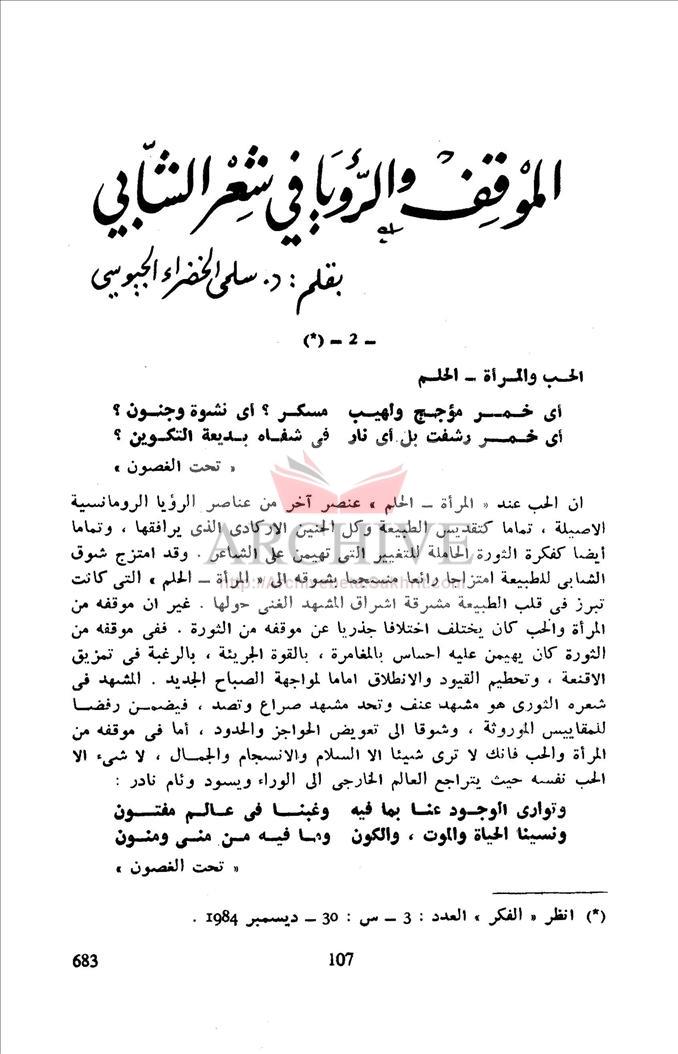 الموقف والرؤيا في شعر الشابي
بقلم : د. سلمى الخضراء الجيوسي
ـ 2 ـ (*)
الحب والمرأة ـ الحلم
أى خمر مؤجج ولهيب مسكر ؟ أى نشوة وجنون ؟
أى خمر رشفت بل أى نار فى شفاه بديعة التكوين ؟
« تحت الغصون »
ان الحب عند « المرأة ـ الحلم » عنصر آخر من عناصر الرؤيا الرومانسية
الاصيلة ، تماما كتقديس الطبيعة وكل الحنين الاركادى الذى يرافقها ، وتماما
أيضا كفكرة الثورة الحاملة للتغيير التى تهيمن على الشاعر . وقد امتزج شوق
الشابى للطبيعة امتزاجا رائعا منسجما بشوقه الى « المرأة ـ الحلم » التى كانت
تبرز فى قلب الطبيعة مشرقة اشراق المشهد الغنى حولها . غير ان موقفه من
المرأة والحب كان يختلف اختلافا جذريا عن موقفه من الثورة . ففى موقفه من
الثورة كان يهيمن عليه احساس بالمغامرة ، بالقوة الجريئة ، بالرغبة فى تمزيق
الاقنعة ، وتحطيم القيود والانطلاق اماما لمواجهة الصباح الجديد . المشهد فى
شعره الثورى هو مشهد عنف وتحد مشهد صراع وتصد ، فيضمن رفضا
للمقاييس الموروثة ، وشوقا الى تعويض الحواجز والحدود ، أما فى موقفه من
المرأة والحب فانك لا ترى شيئا الا السلام والانسجام والجمال ، لا شىء الا
الحب نفسه حيث يتراجع العالم الخارجى الى الوراء ويسود وئام نادر :
وتوارى الوجود عنا بما فيه وغبنا فى عالم مفتون
ونسينا الحياة والموت ، والكون وما فيه من منى ومنون
« تحت الغصون »
(*) انظر « الفكر » العدد : 3 ـ س : 30 ـ ديسمبر 1984 .
107
683
ARCHIVE